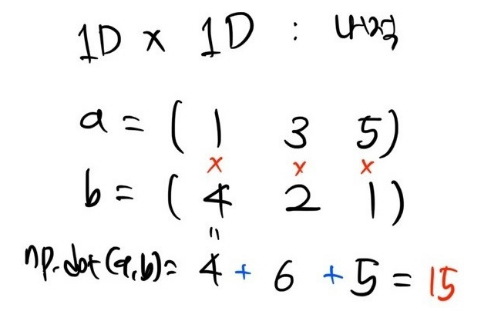 1D x 1D : 내적
a = ( 1 3 5 )
x x x
b = ( 4 2 1 )
"
np.dot(a,b) = 4 + 6 + 5 = 15